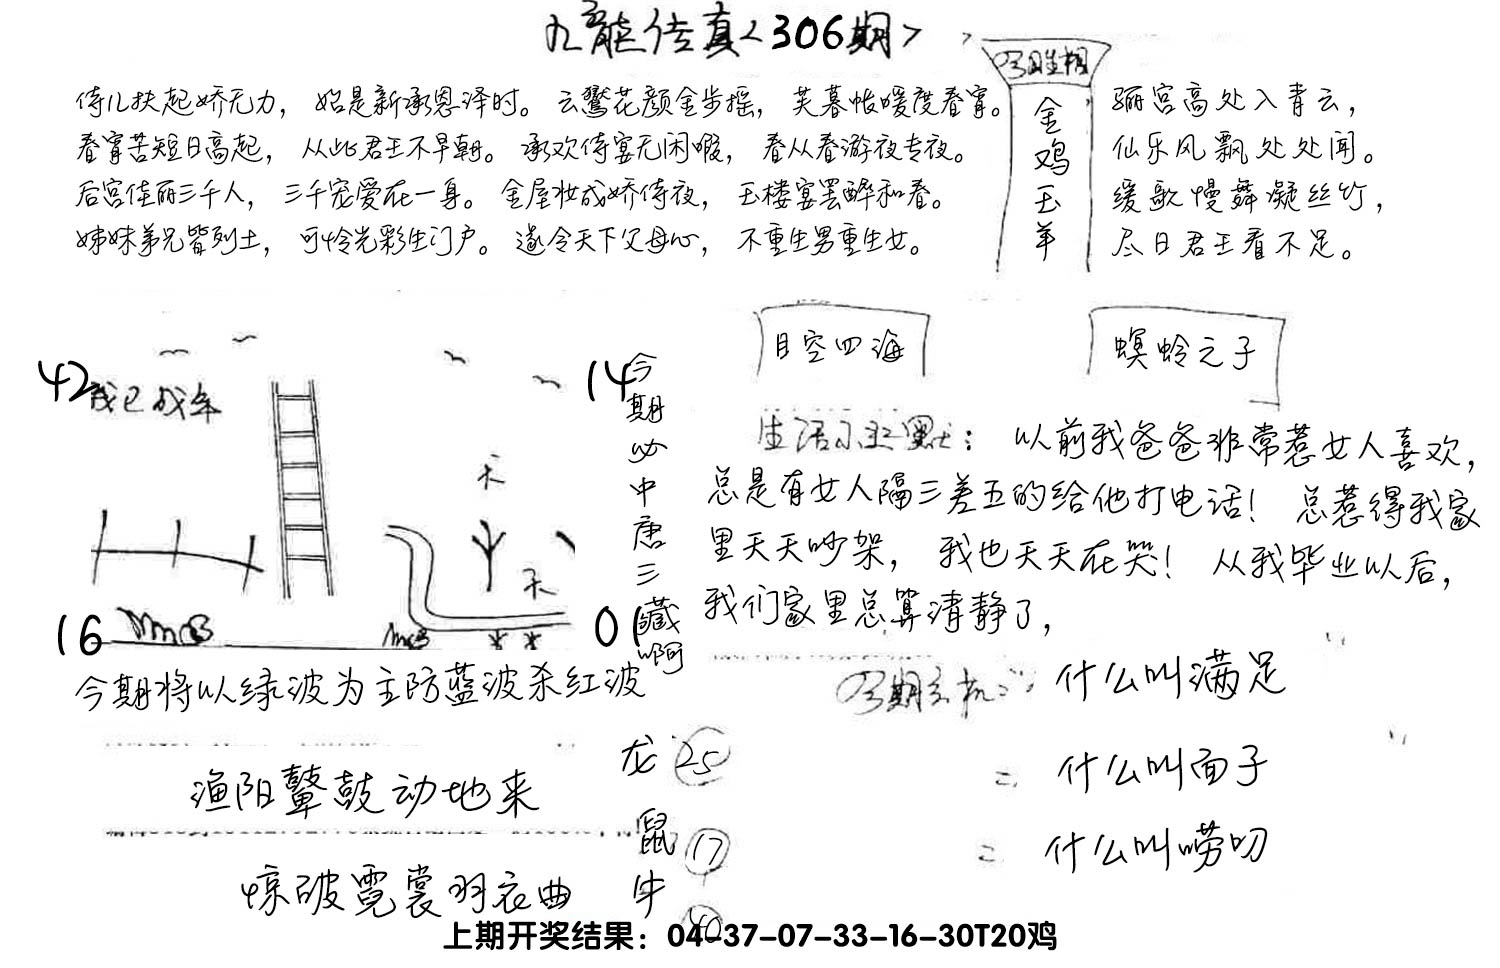 九龙传真<306期>
今期生相
侍儿扶起娇无力，始是新承恩泽时。云鬓花颜金步摇，芙暮帐暖度春宵。
春宵苦短日高起，从此君王不早朝。承欢侍宴无闲暇，春从春游夜专夜。
后宫佳丽三千人，三千宠爱在一身。金屋妆成娇侍夜，玉楼宴罢醉和春。
姊妹弟兄皆列土，可怜光彩生门户。遂令天下父母心，不重生男重生女。
金鸡玉羊
骊宫高处入青云，
仙乐风飘处处闻。
缓歌慢舞凝丝竹，
尽日君王看不足。
目空四海
螟蛉之子
42
14
我已成年
天
天
16
01
今期必中唐三藏啊
今期将以绿波为主防蓝波杀红波
生活小幽默：以前我爸爸非常惹女人喜欢，
总是有女人隔三差五的给他打电话！总惹得我家
里天天吵架，我也天天在哭！从我毕业以后，
我们家里总算清静了，
今期玄机：什么叫满足
二 什么叫面子
二 什么叫唠叨
渔阳鼙鼓动地来
惊破霓裳羽衣曲
龙 25
鼠 17
牛 40
上期开奖结果：04-37-07-33-16-30T20鸡